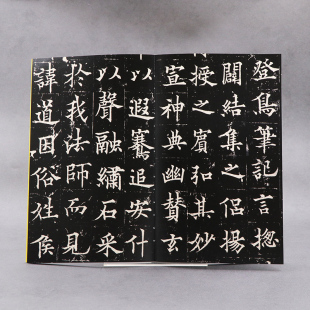 登鳥筆記言惣
闢結集之侶揚
授之賓弘其妙
宣神典幽賛玄
以遐騫追安什
以聲融繡石采
扵我法師而見
諱道因俗姓侯